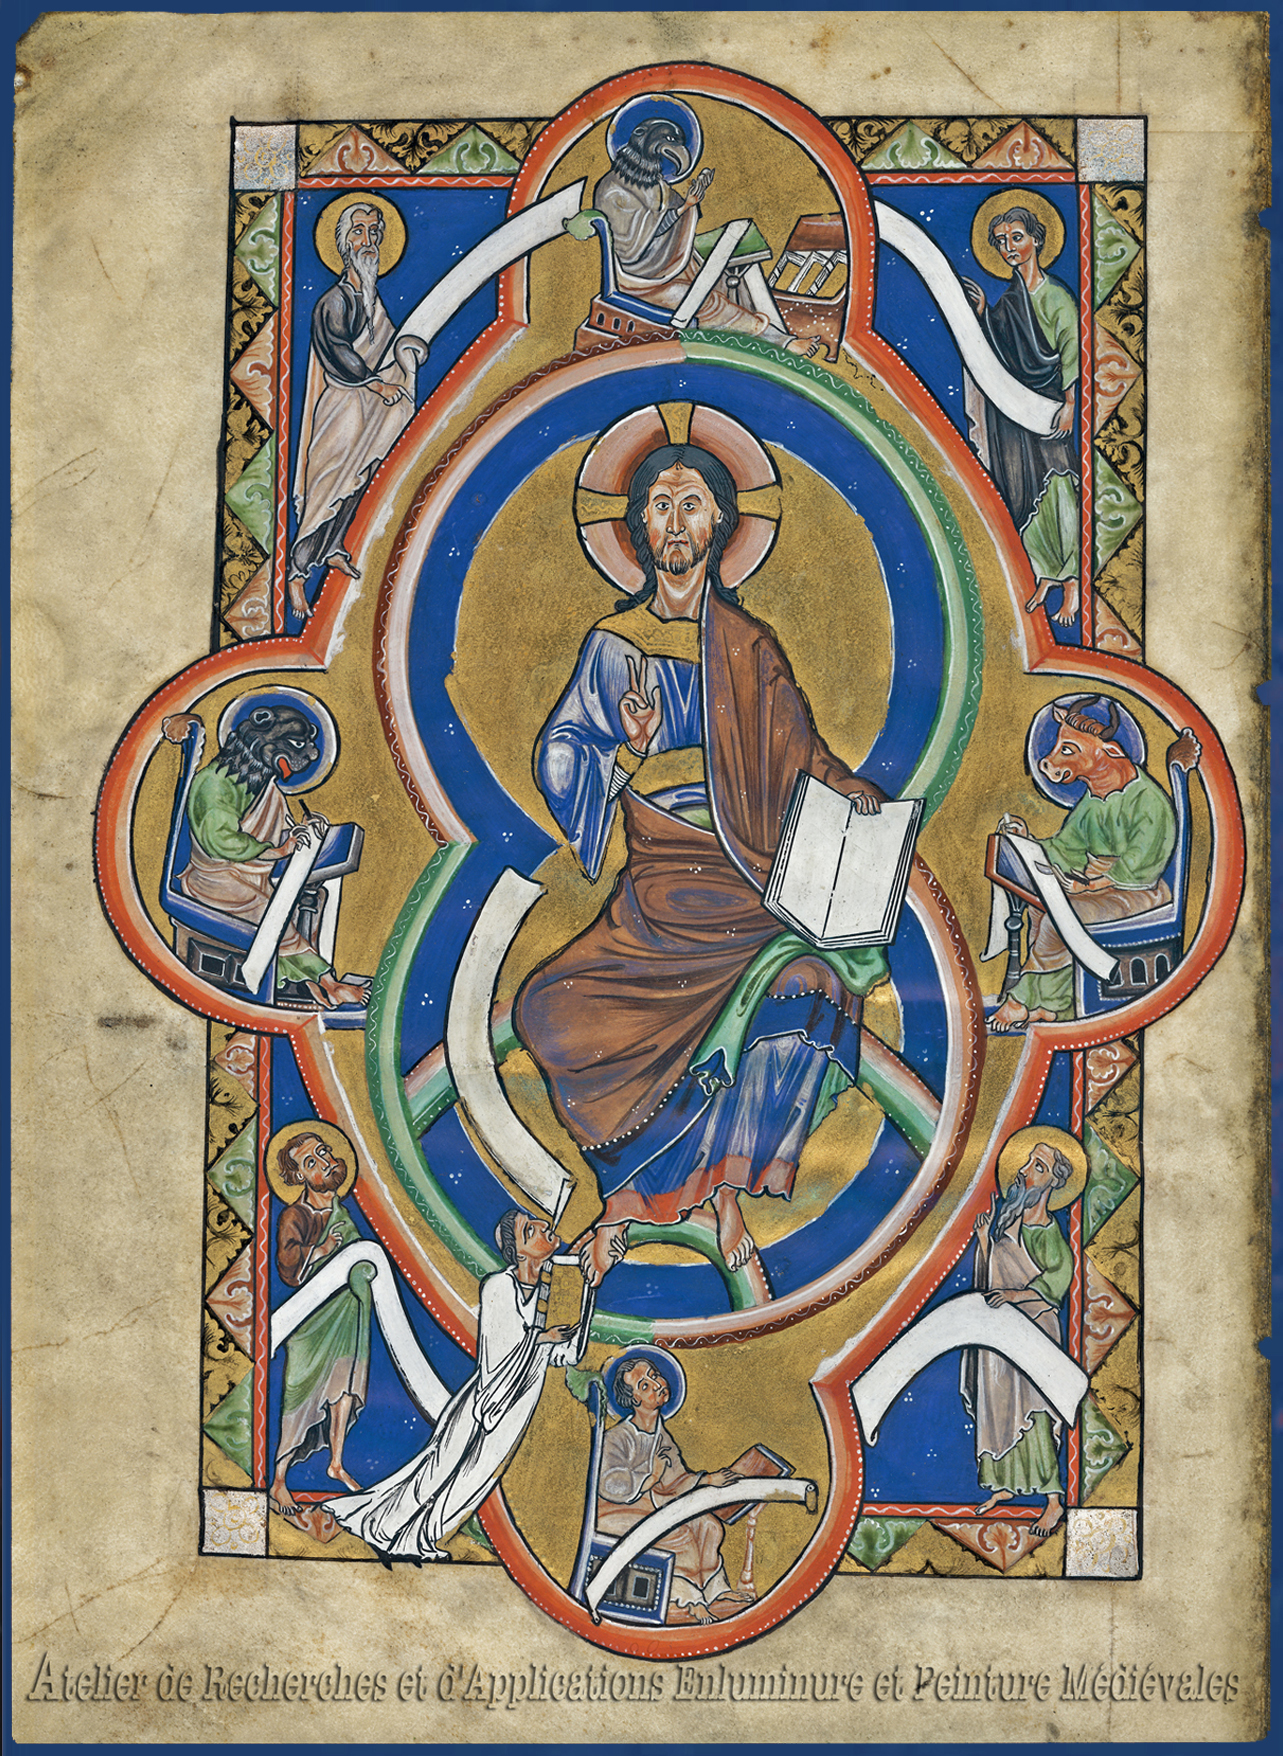 Atelier de Recherches et d'Applications Enluminure et Peinture Médiévales